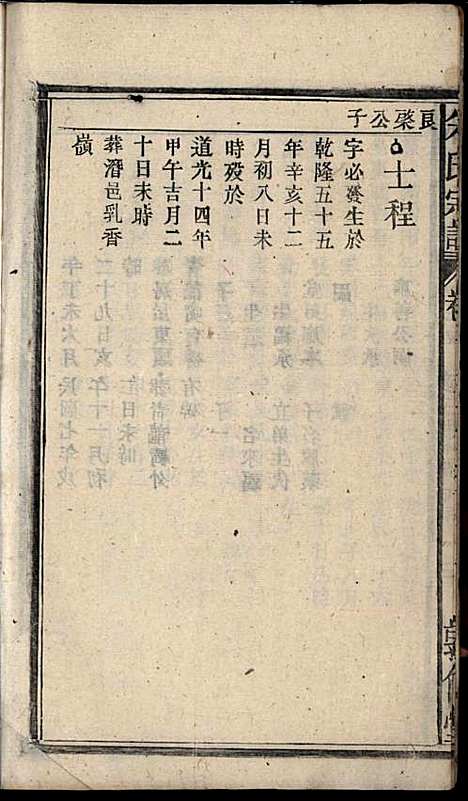 良棨公子
士程
字必發生於
乾隆五十五
年辛亥十二
月初八日未
時殁於
道光十四年
甲午吉月二
十日未時
葬潛邑乳香
嶺
氏宗譜